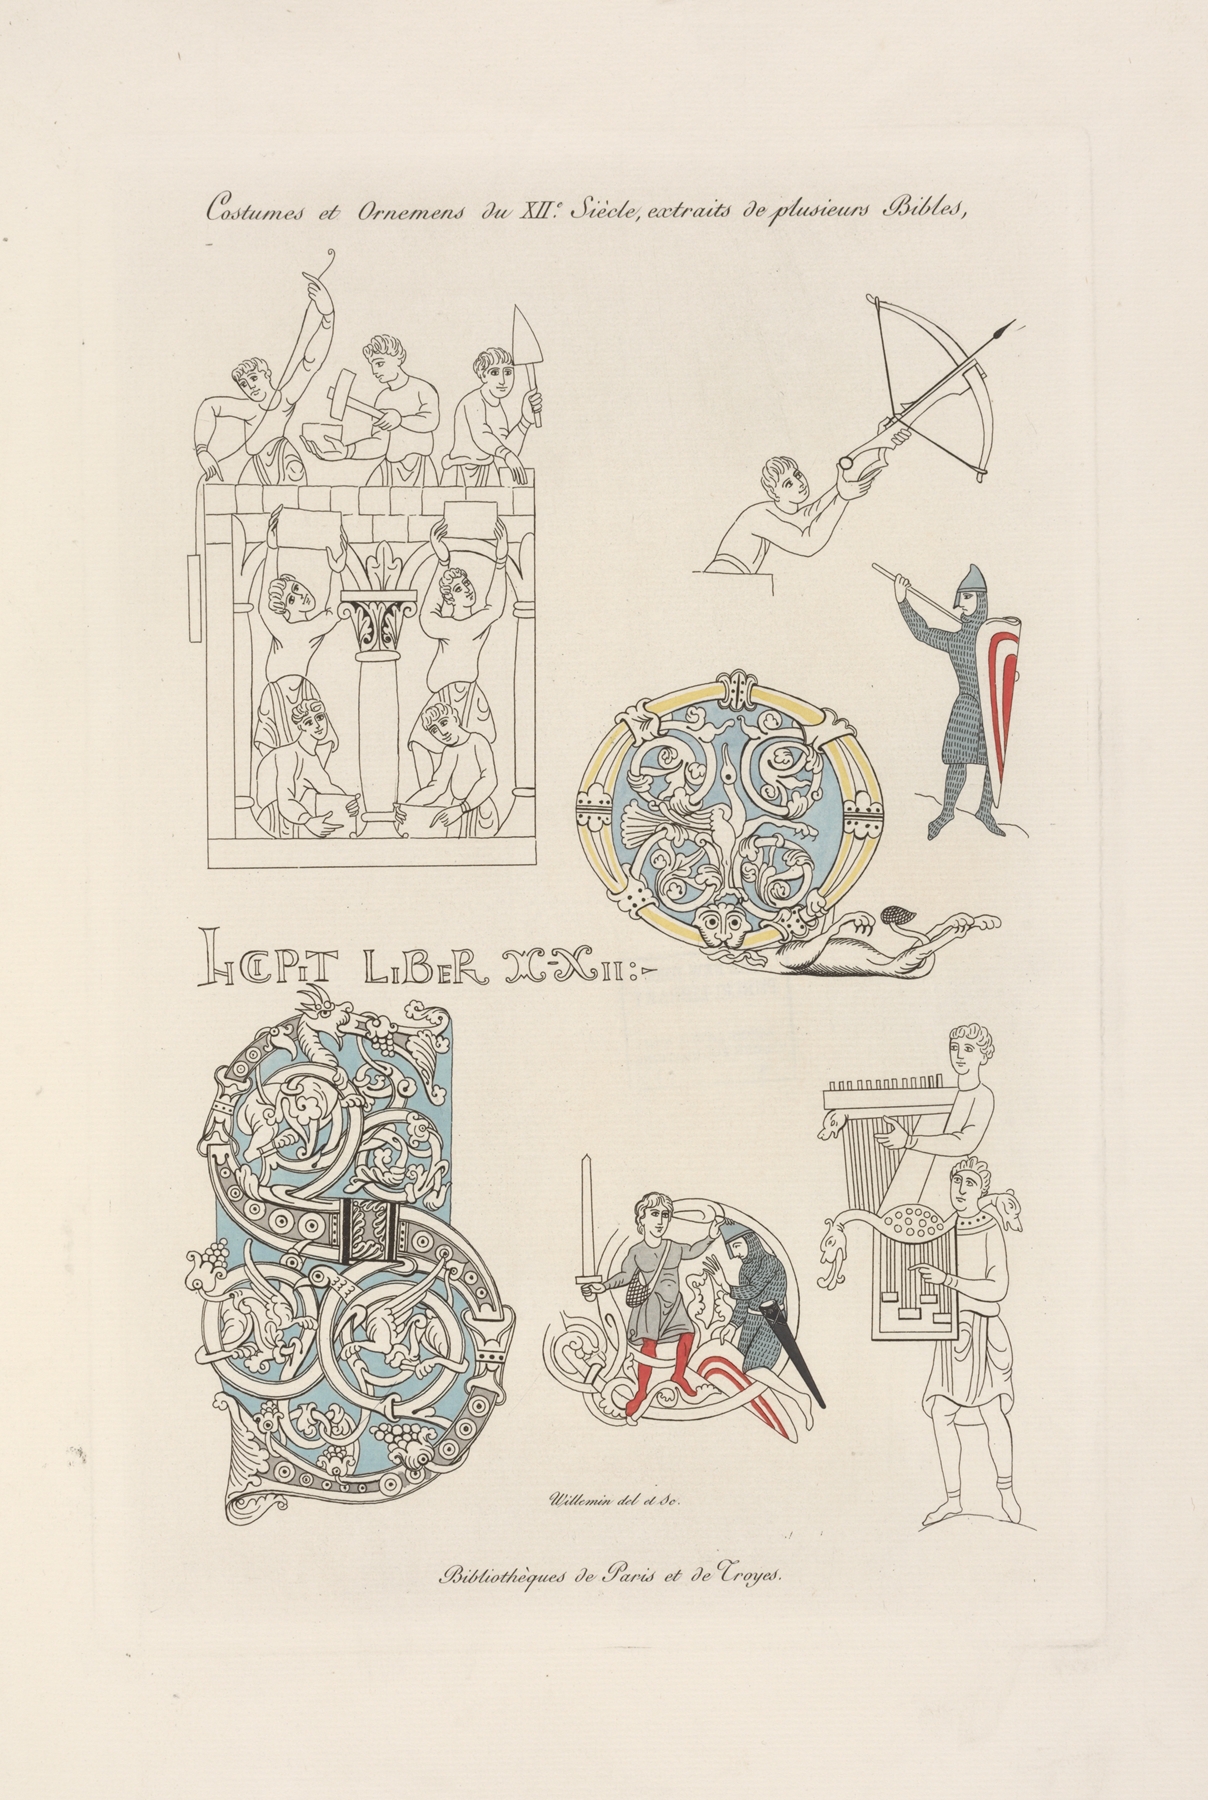 Costumes et Ornemens du XII.e Siècle, extraits de plusieurs Bibles,
INCIPIT LIBER X-XII:-
Willemin del et Sc.
Bibliothèques de Paris et de Troyes.